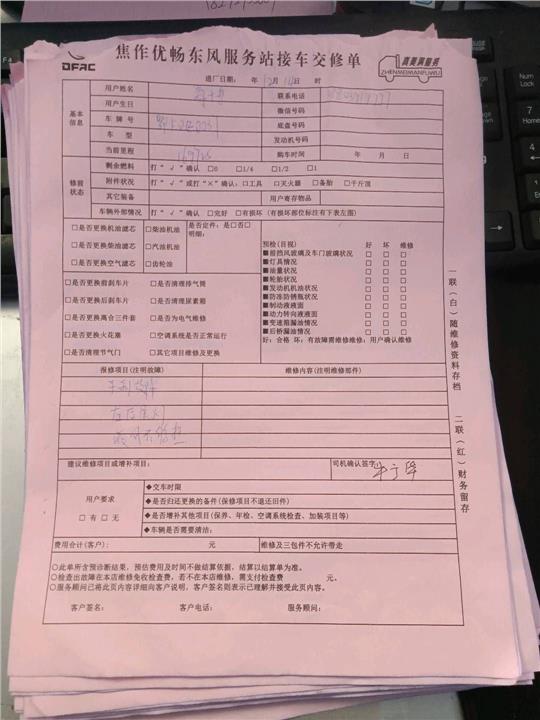 焦作优畅东风服务站接车交修单
DFAC
真美满服务
ZHENMEIMANFUWU
进厂日期: 年 12月 日 时
基本信息
用户姓名 联系电话
用户生日 微信号码
车牌号 底盘号码
车型 发动机号码
当前里程 购车时间 年 月 日
修前状态
剩余燃料 打“√”确认 □0 □1/4 □1/2 □1
附件状况 打“√”或打“×”确认:□工具 □灭火器 □备胎 □千斤顶
其它装备 用户寄存物品
车辆外部情况 打“√”确认 □完好 □有损坏(有损坏部位标注有下表左图)
□是否更换机油滤芯 □柴油机油
□是否更换柴油滤芯 □汽油机油
□是否更换空气滤芯 □齿轮油
是否定件:是□否□
明细:
□是否更换前刹车片 □是否清理排气筒
□是否更换后刹车片 □是否清理尿素箱
□是否更换离合三件套 □是否为电气维修
□是否更换火花塞 □空调系统是否正常运行
□是否清理节气门 □其它项目维修及更换
预检(目视) 好 坏 维修
■前挡风玻璃及车门玻璃状况 □ □ □
■灯具情况 □ □ □
■油量状况 □ □ □
■轮胎状况 □ □ □
■发动机机油状况 □ □ □
■防冻防锈瓶状况 □ □ □
■制动液液面 □ □ □
■动力转向液液面 □ □ □
■变速箱漏油情况 □ □ □
■后桥漏油情况 □ □ □
好:合格 坏:有故障需维修维修:用户确认维修
报修项目(注明故障) 维修内容(注明维修部件)
建议维修项目或增补项目: 司机确认签字:
用户要求
□有 □无
◆交车时限
◆是否归还更换的备件(保修项目不退还旧件)
◆是否增补其他项目(保养、年检、空调系统检查、加装项目等)
◆车辆是否需要清洁:
费用合计(客户): 元 维修及三包件不允许带走
○此单所含预诊断结果,预估费用及时间不做结算依据,结算以结算单为准。
○检查出故障在本店维修免收检查费,若不在本店维修,需支付检查费 元。
○服务顾问已将此页内容详细向客户说明,客户签名则表示已理解并接受此页内容。
客户签名: 客户电话: 服务顾问:
一联(白)随维修资料存档 二联(红)财务留存